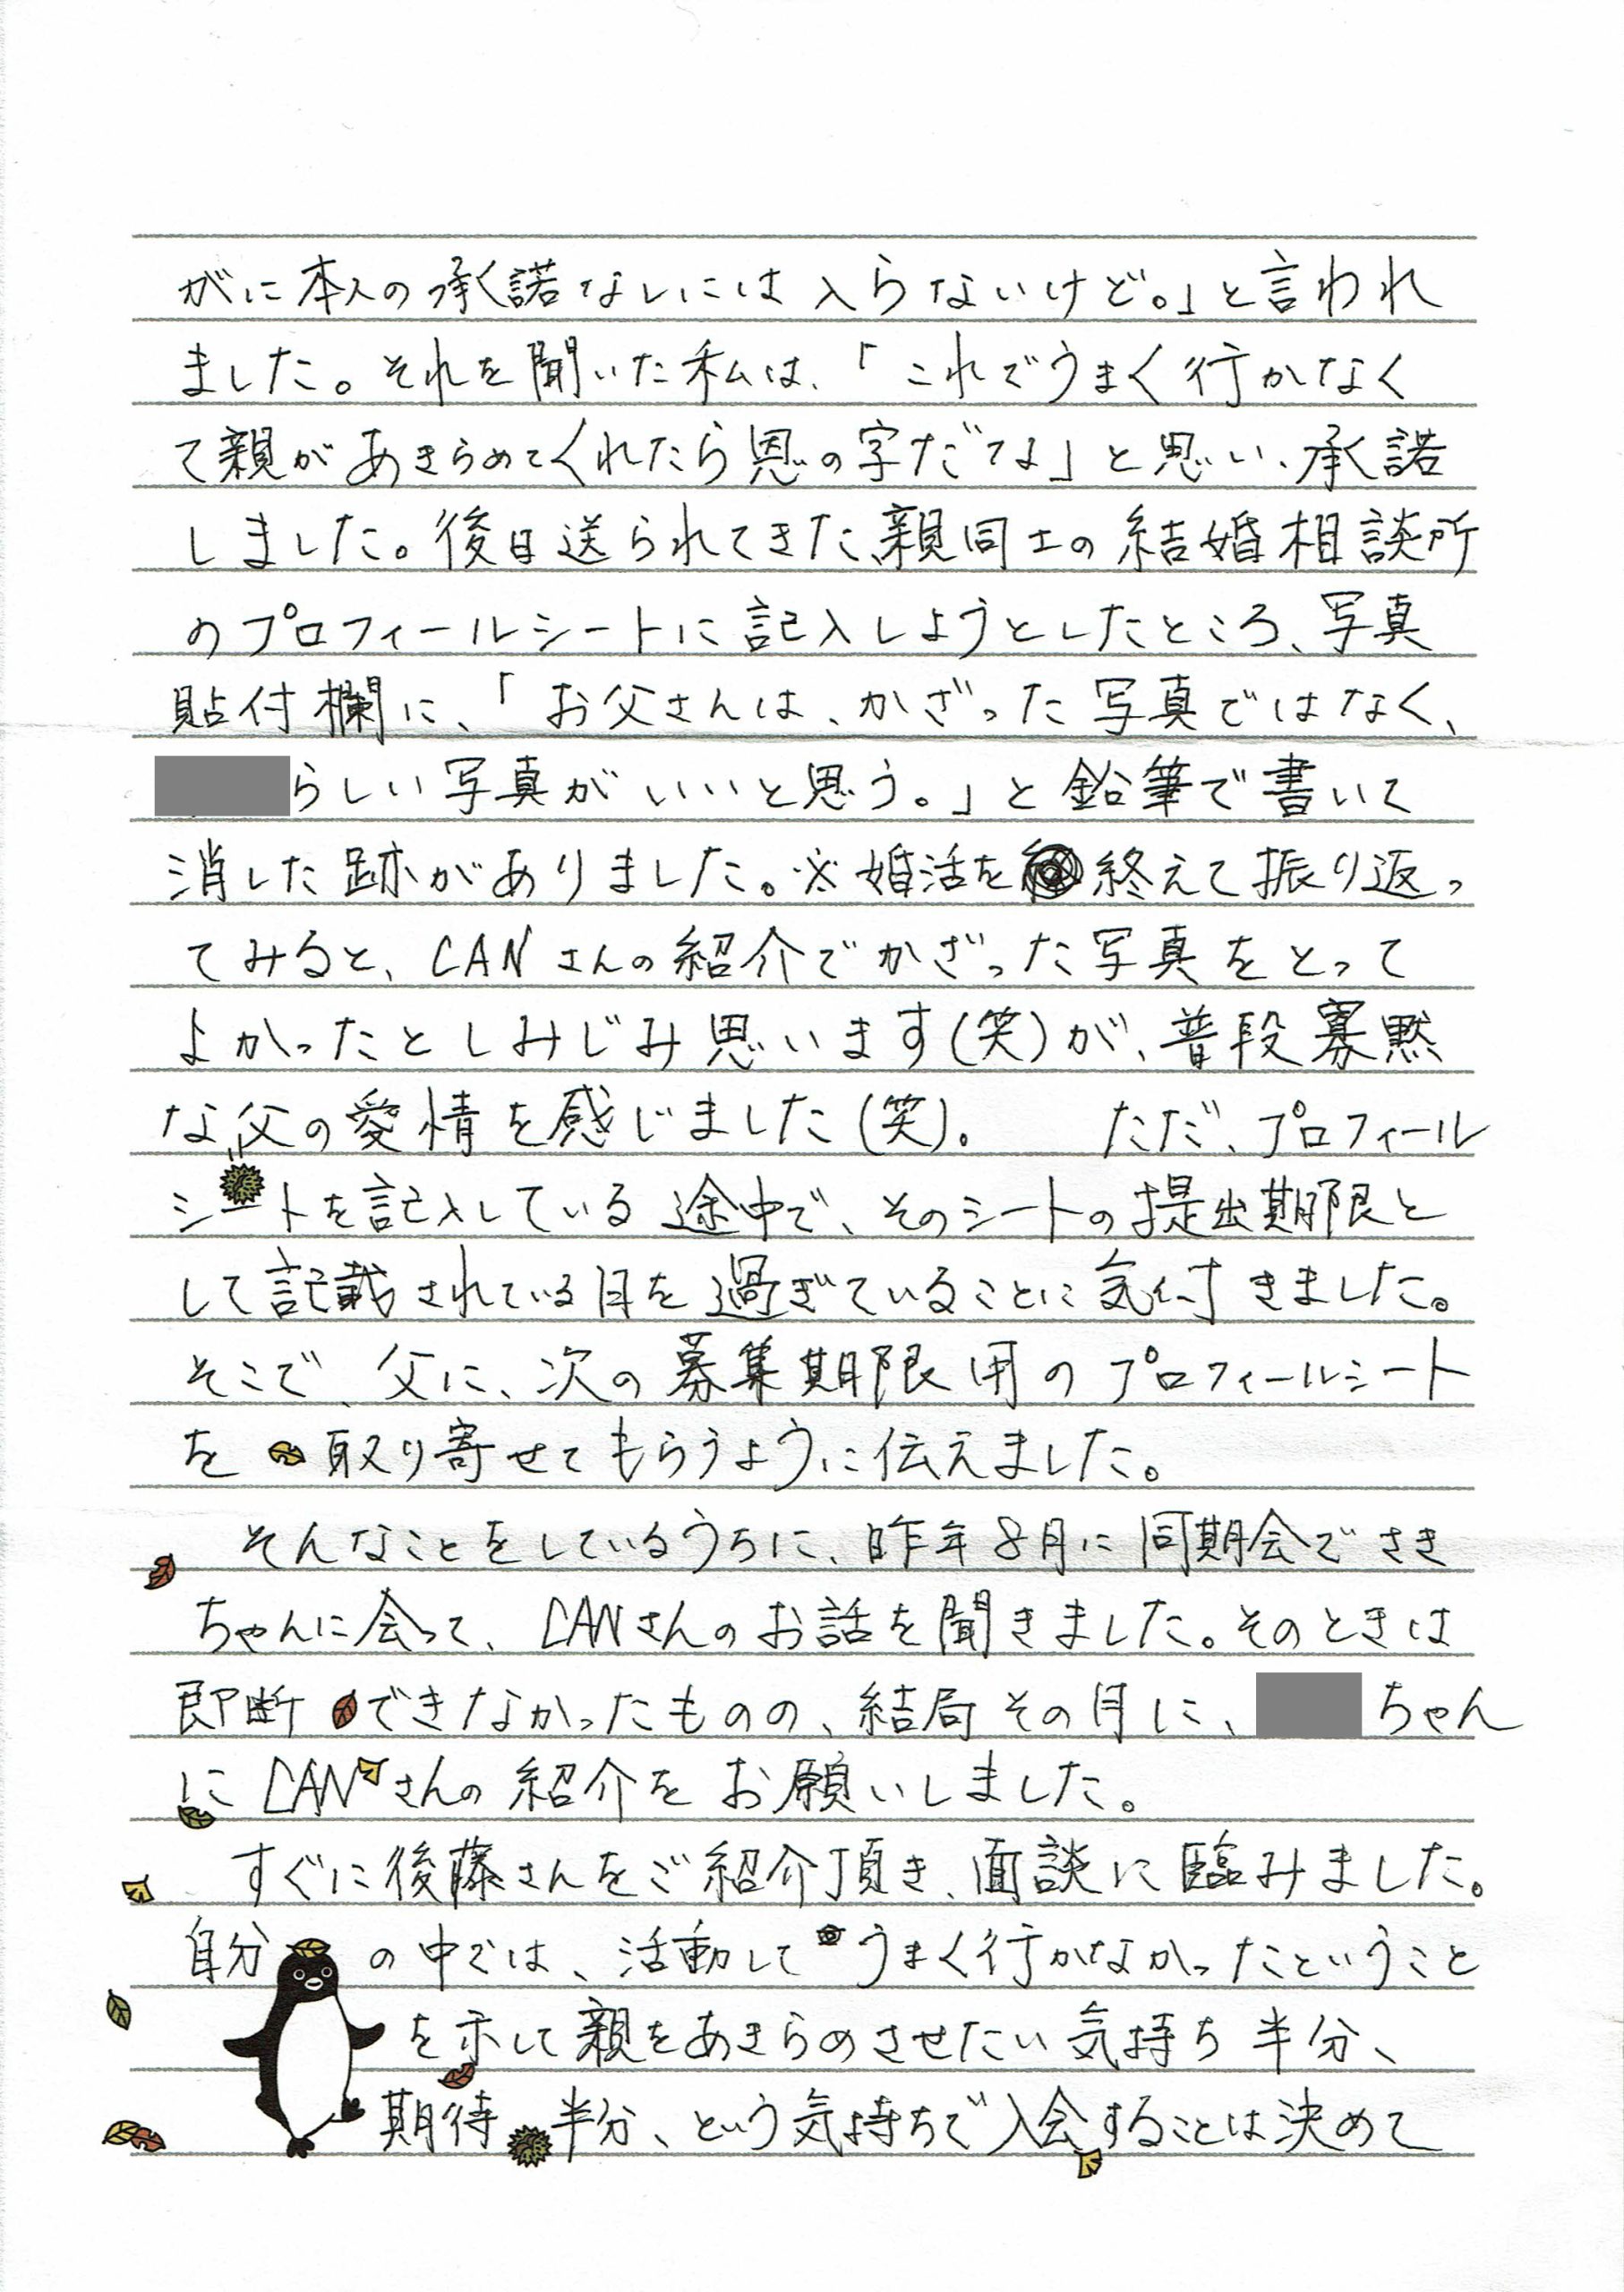 がに本人の承諾なしには入らないけど。」と言われ
ました。それを聞いた私は、「これでうまく行かなく
て親があきらめてくれたら恩の字だな」と思い、承諾
しました。後日送られてきた、親同士の結婚相談所
のプロフィールシートに記入しようとしたところ、写真
貼付欄に、「お父さんは、かざった写真ではなく、
らしい写真がいいと思う。」と鉛筆で書いて
消した跡がありました。※婚活を終えて振り返っ
てみると、CANさんの紹介でかざった写真をとって
よかったとしみじみ思います(笑)が、普段寡黙
な父の愛情を感じました(笑)。 ただ、プロフィール
シートを記入している途中で、そのシートの提出期限と
して記載されている月を過ぎていることに気付きました。
そこで、父に、次の募集期限用のプロフィールシート
を取り寄せてもらうように伝えました。
そんなことをしているうちに、昨年8月に同期会でさき
ちゃんに会って、CANさんのお話を聞きました。そのときは
即断できなかったものの、結局その月に、ちゃん
にCANさんの紹介をお願いしました。
すぐに後藤さんをご紹介頂き、面談に臨みました。
自分の中では、活動してうまく行かなかったということ
を示して親をあきらめさせたい気持ち半分、
期待半分、という気持ちで入会することは決めて